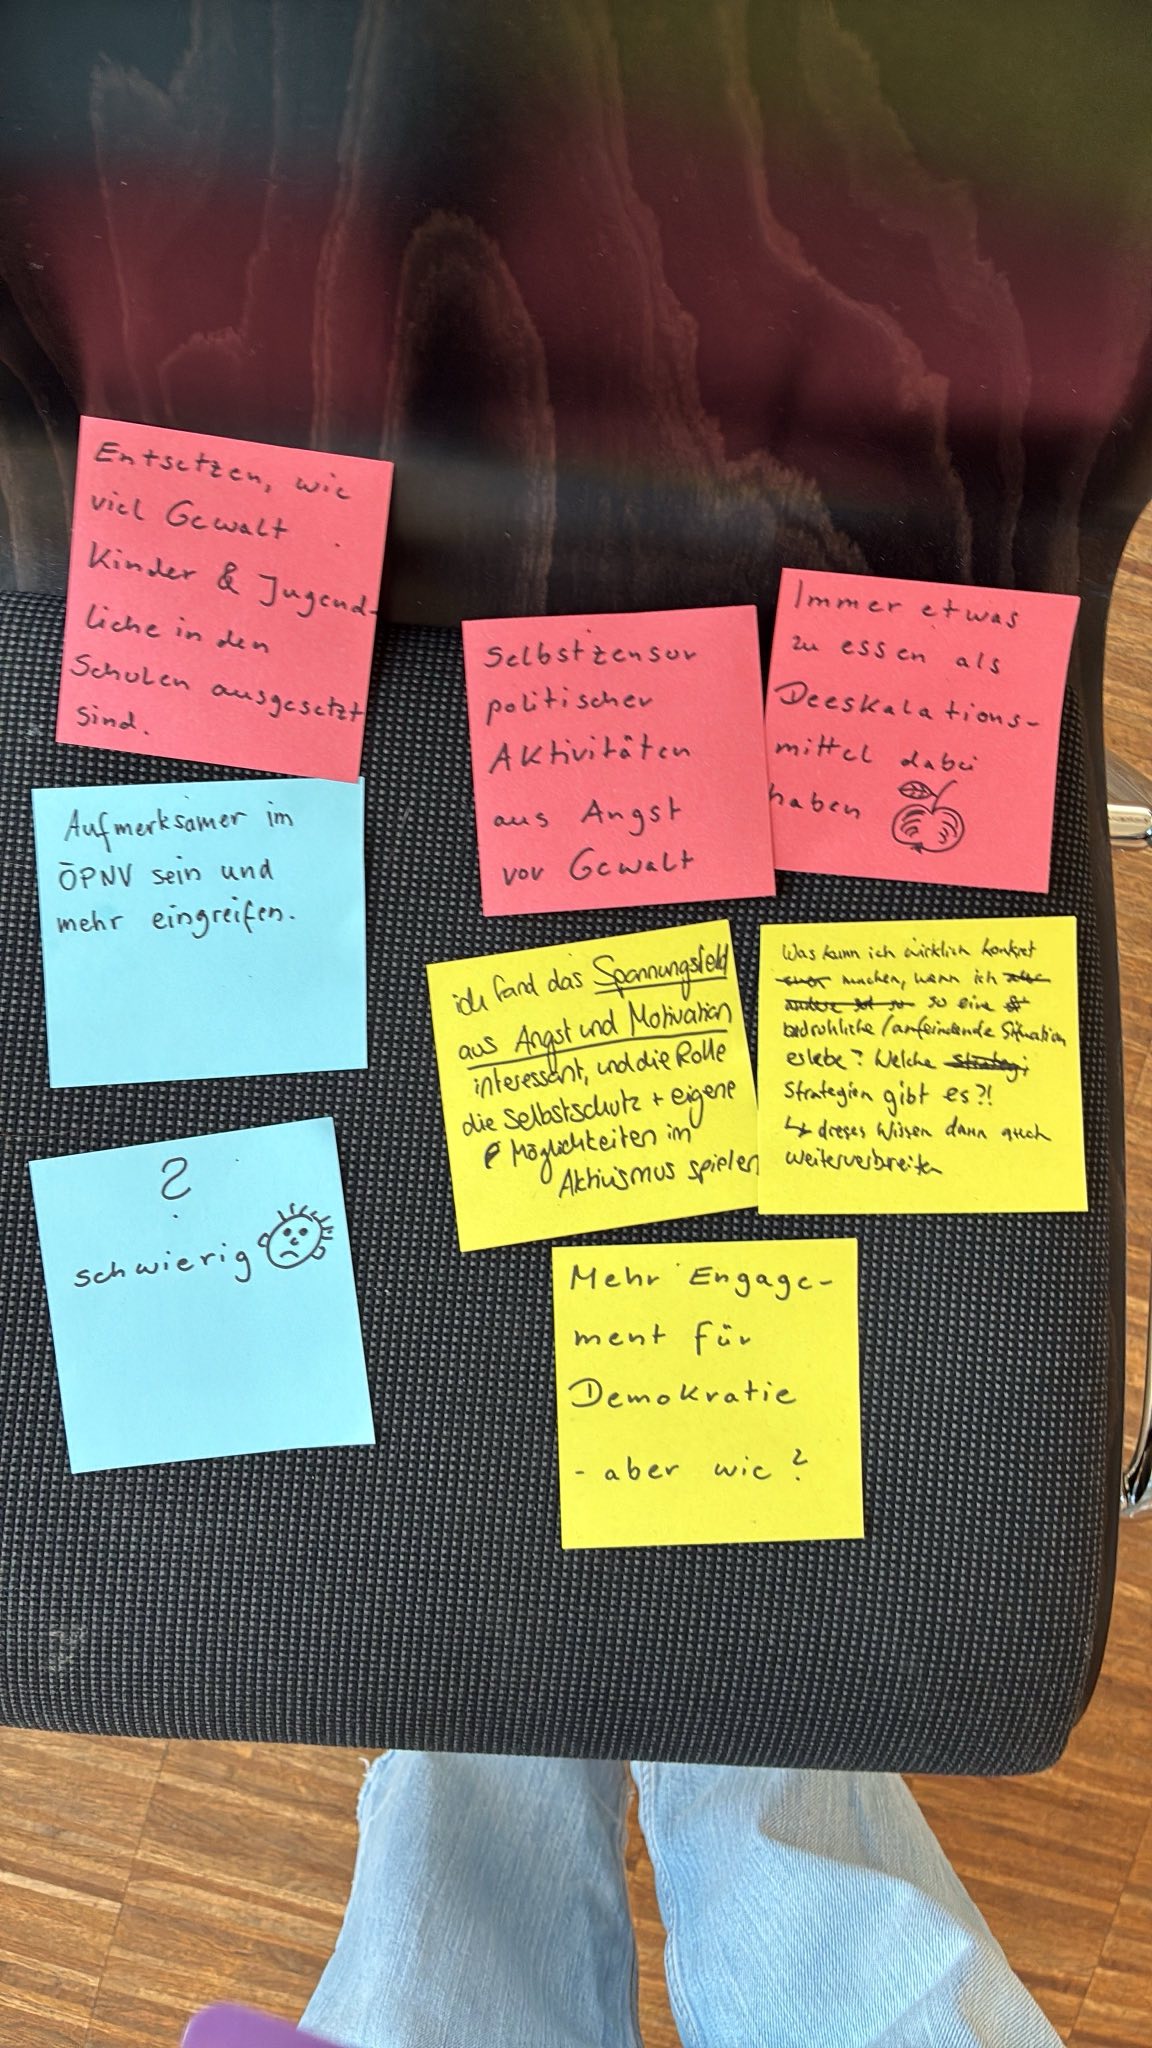 Entsetzen, wie
viel Gewalt
Kinder & Jugend-
liche in den
Schulen ausgesetzt
sind.
Selbstzensur
politischer
Aktivitäten
aus Angst
vor Gewalt
Immer etwas
zu essen als
Deeskalations-
mittel dabei
haben
Aufmerksamer im
ÖPNV sein und
mehr eingreifen.
ich fand das Spannungsfeld
aus Angst und Motivation
interessant, und die Rolle
die Selbstschutz + eigene
Möglichkeiten im
Aktivismus spielen
Was kann ich wirklich konkret
machen, wenn ich
so eine
bedrohliche/anfeindende Situation
erlebe? Welche
Strategien gibt es?!
↳ dieses Wissen dann auch
weiterverbreiten
?
schwierig
Mehr Engage-
ment für
Demokratie
- aber wie?